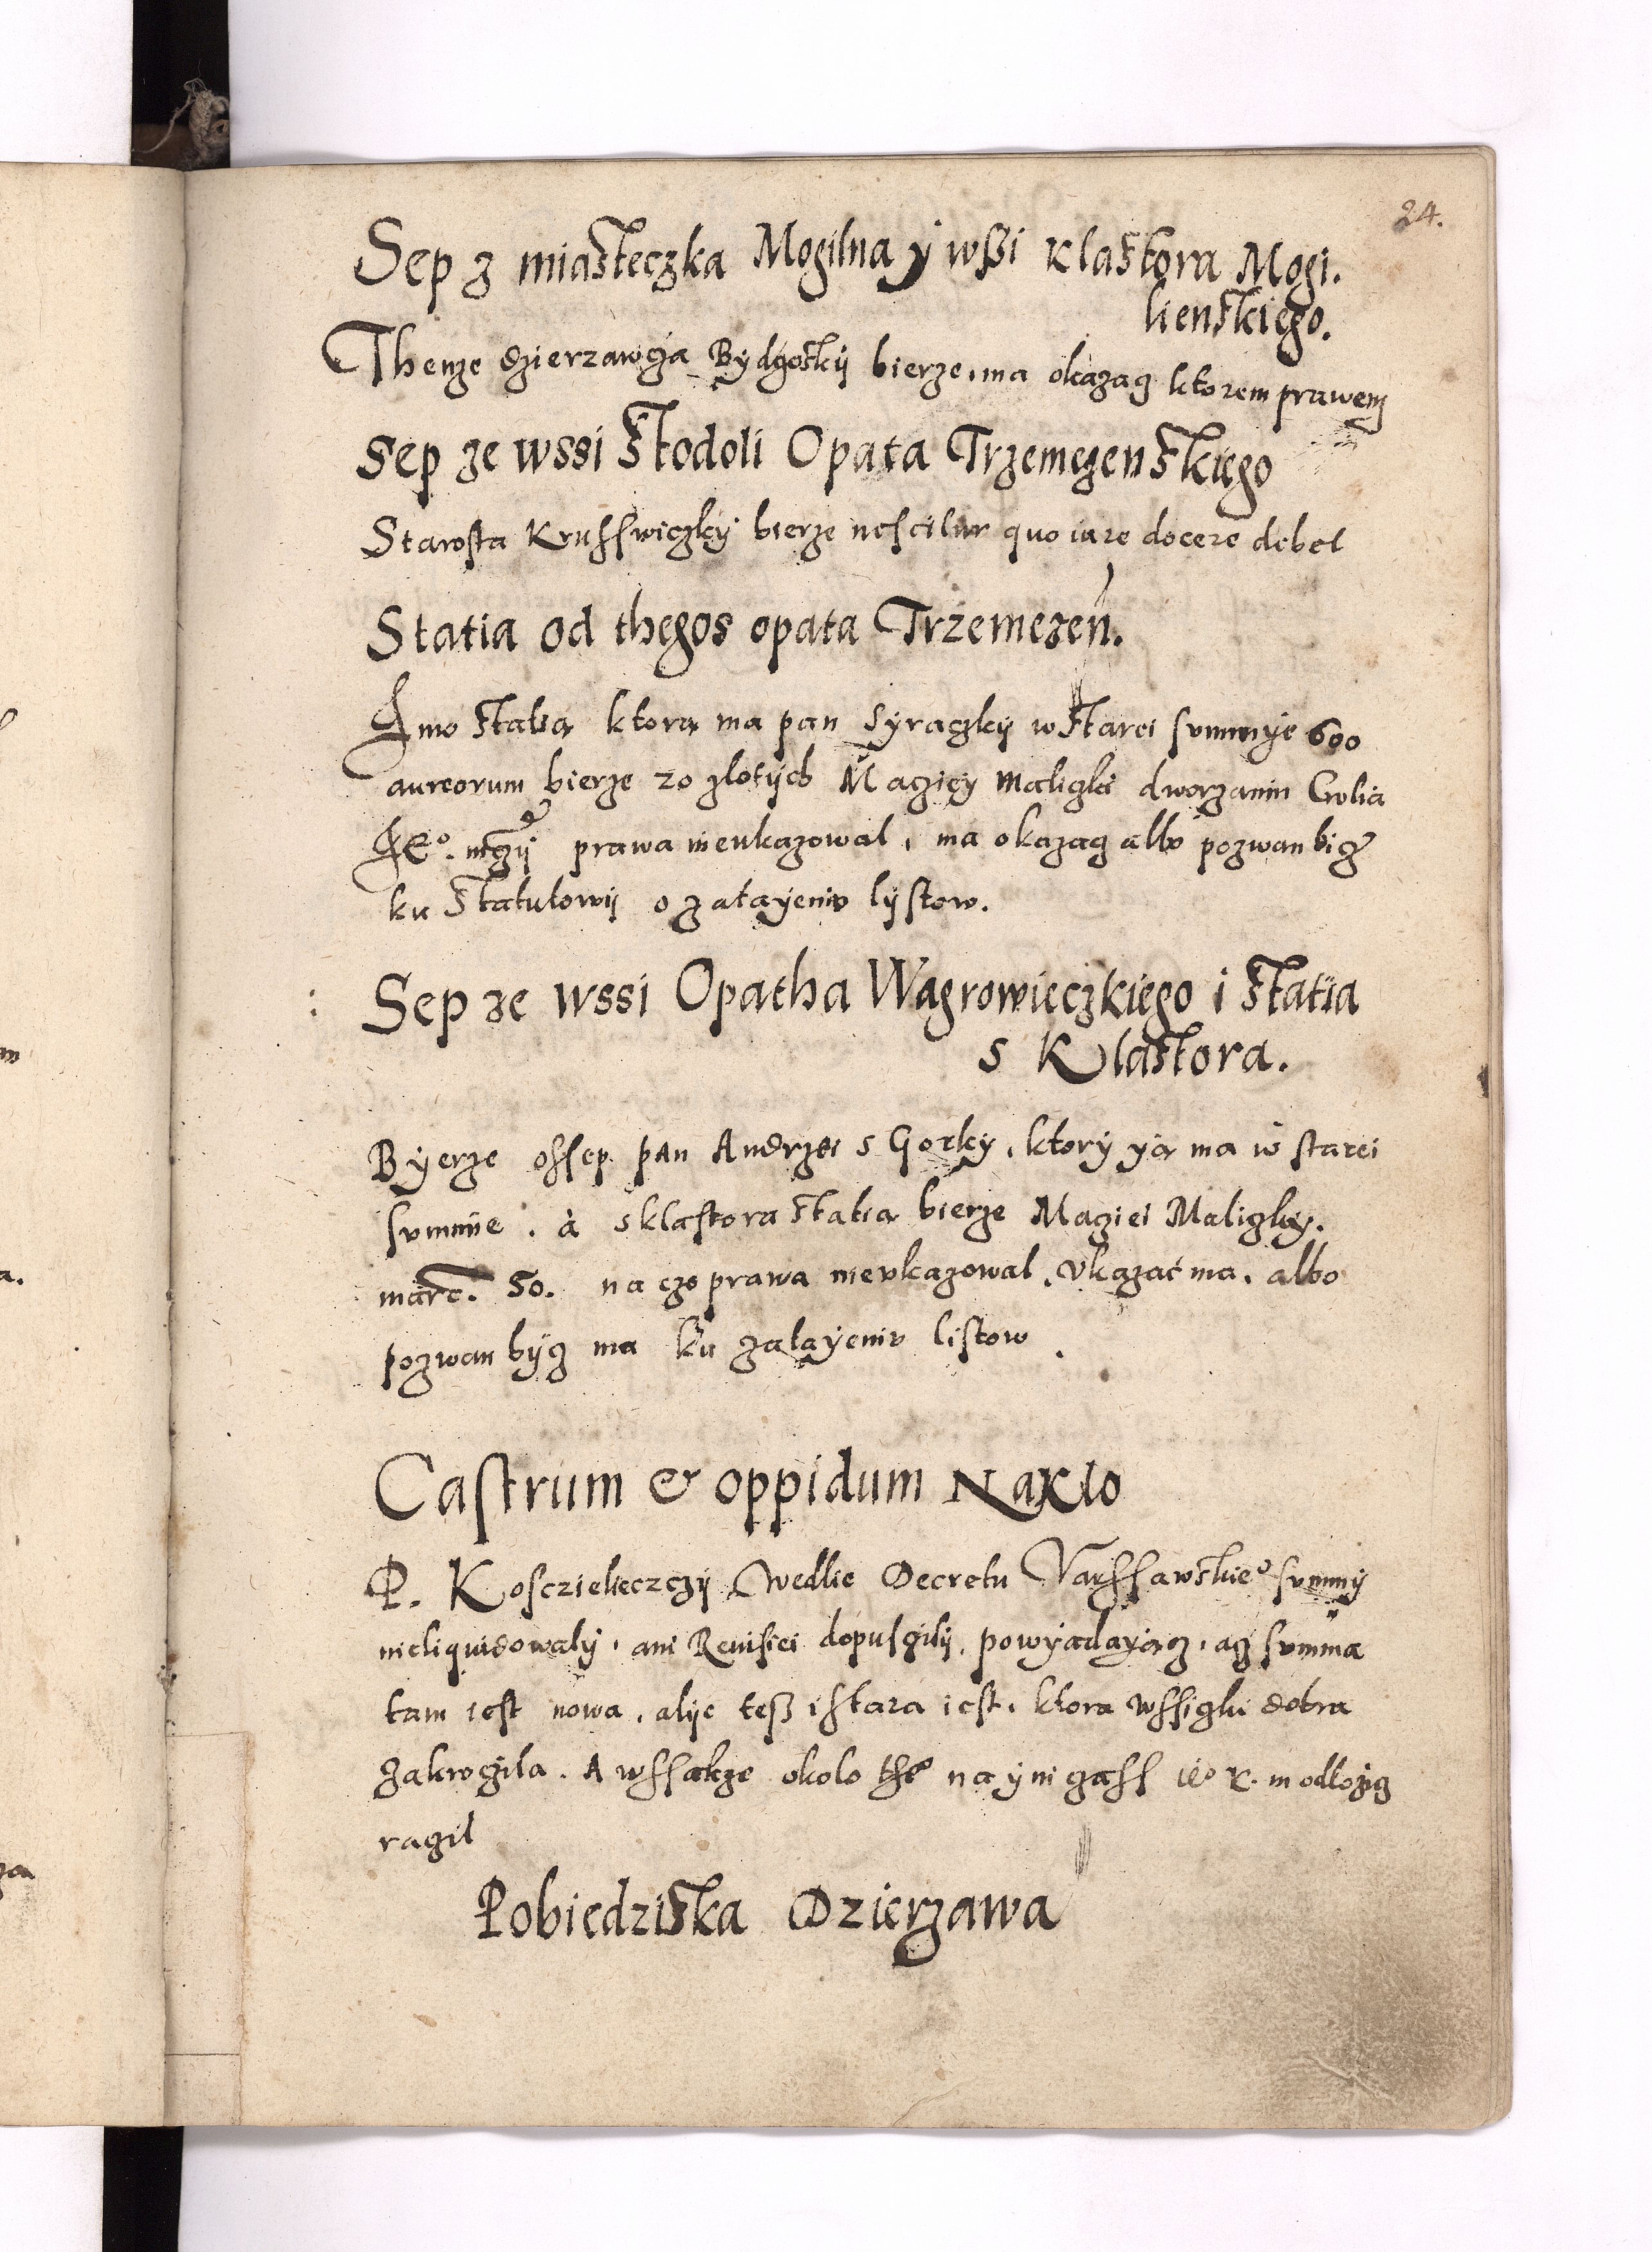 24.
Sep z miasteczka Mogilna y wßi Klastora Mogi.
lienskiego.
Thenze dzierzawcza Bydgoskij bierze, ma okazacz ktorem prawem
Sep ze wssi Stodoli Opata Trzemezenskiego
Starosta Krusswiczky bierze nescitur quo iure docere debet
Statia od thegos opata Trzemezen.
Amo Statia ktora ma pan Syraczkij w starei summye 600
aureorum bierze 20 zlotych Maziey Maliczki dworzanin Crolia
prawa nieukazowal, ma okazacz albo pozwan bicz
ku Statutowij o zatayeniv lystow.
Sep ze wssi Opatha Wagrowieczkiego i Statia
s Klastora.
Byerze ossep pan Andrzei s Gorky, ktory ya ma w starei
summie. à s klastora Statia bierze Maziei Maliczky.
marc. 50. na czo prawa nievkazowal, Vkazać ma, albo
pozwan bycz ma ku zatayeniv listow.
Castrum & oppidum Naklo
P. Kosczielieczczij Wedlie Decretu Varssawskieo summy
nieliquidowaly, ani Reuisiei dopusczilij, powyadayącz, acz summa
tam iest nowa, alie teß i stara iest, ktora wssiczki dobra
zakroczila. A wssakze okolo the naynizass ieo K. m odlozicz
raczil
Pobiedziska Dzierzawa